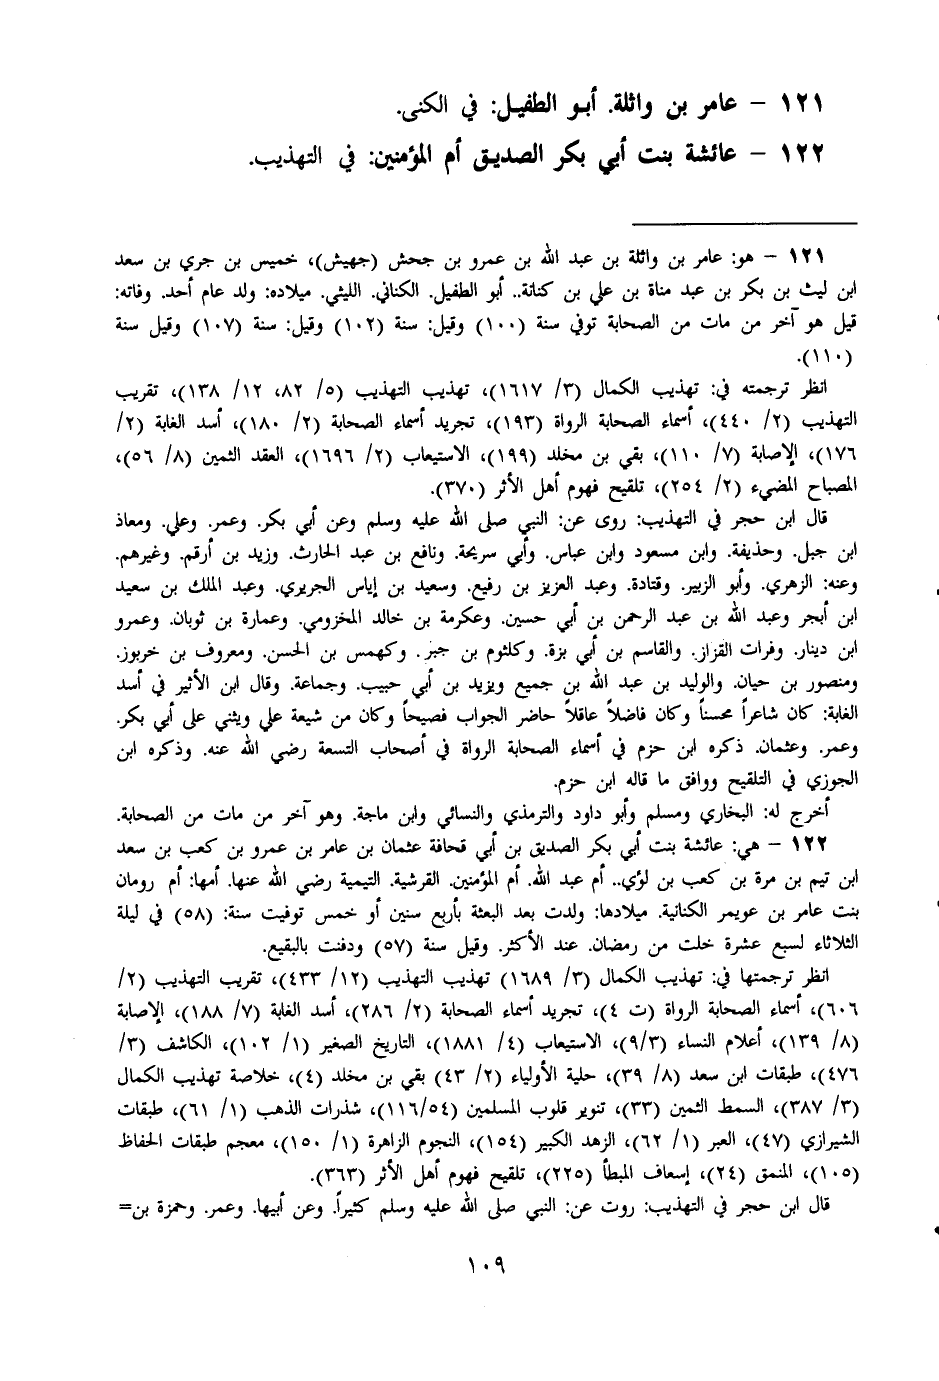 ١٢١ – عامر بن واثلة. أبو الطفيل: في الكنى.
١٢٢ – عائشة بنت أبي بكر الصديق أم المؤمنين: في التهذيب.
١٢١ – هو: عامر بن واثلة بن عبد الله بن عمرو بن جحش (جهيش)، خميس بن جري بن سعد
ابن ليث بن بكر بن عبد مناة بن علي بن كنانة.. أبو الطفيل. الكناني. الليثي. ميلاده: ولد عام أحد. وفاته:
قيل هو آخر من مات من الصحابة توفي سنة (١٠٠) وقيل: سنة (١٠٢) وقيل: سنة (١٠٧) وقيل سنة
(١١٠).
انظر ترجمته في: تهذيب الكمال (٣/ ١٦١٧)، تهذيب التهذيب (٥/ ٨٢، ١٢/ ١٣٨)، تقريب
التهذيب (٢/ ٤٤٠)، أسماء الصحابة الرواة (١٩٣)، تجريد أسماء الصحابة (٢/ ١٨٠)، أسد الغابة (٢/
١٧٦)، الإصابة (٧/ ١١٠)، بقي بن مخلد (١٩٩)، الاستيعاب (٢/ ١٦٩٦)، العقد الثمين (٨/ ٥٦)،
المصباح المضيء (٢/ ٢٥٤)، تلقيح فهوم أهل الأثر (٣٧٠).
قال ابن حجر في التهذيب: روى عن: النبي صلى الله عليه وسلم وعن أبي بكر. وعمر. وعلي. ومعاذ
ابن جبل. وحذيفة. وابن مسعود وابن عباس. وأبي سريحة. ونافع بن عبد الحارث. وزيد بن أرقم. وغيرهم.
وعنه: الزهري. وأبو الزبير. وقتادة. وعبد العزيز بن رفيع. وسعيد بن إياس الجريري. وعبد الملك بن سعيد
ابن أبجر وعبد الله بن عبد الرحمن بن أبي حسين. وعكرمة بن خالد المخزومي. وعمارة بن ثوبان. وعمرو
ابن دينار. وفرات القزاز. والقاسم بن أبي بزة. وكلثوم بن جبر. وكهمس بن الحسن. ومعروف بن خربوز.
ومنصور بن حيان. والوليد بن عبد الله بن جميع ويزيد بن أبي حبيب. وجماعة. وقال ابن الأثير في أسد
الغابة: كان شاعراً محسناً وكان فاضلاً عاقلاً حاضر الجواب فصيحاً وكان من شيعة علي ويثني على أبي بكر.
وعمر. وعثمان. ذكره ابن حزم في أسماء الصحابة الرواة في أصحاب التسعة رضي الله عنه. وذكره ابن
الجوزي في التلقيح ووافق ما قاله ابن حزم.
أخرج له: البخاري ومسلم وأبو داود والترمذي والنسائي وابن ماجة. وهو آخر من مات من الصحابة.
١٢٢ – هي: عائشة بنت أبي بكر الصديق بن أبي قحافة عثمان بن عامر بن عمرو بن كعب بن سعد
ابن تيم بن مرة بن كعب بن لؤي.. أم عبد الله. أم المؤمنين. القرشية. التيمية رضي الله عنها. أمها: أم رومان
بنت عامر بن عويمر الكنانية. ميلادها: ولدت بعد البعثة بأربع سنين أو خمس توفيت سنة: (٥٨) في ليلة
الثلاثاء لسبع عشرة خلت من رمضان. عند الأكثر. وقيل سنة (٥٧) ودفنت بالبقيع.
انظر ترجمتها في: تهذيب الكمال (٣/ ١٦٨٩) تهذيب التهذيب (١٢/ ٤٣٣)، تقريب التهذيب (٢/
٦٠٦)، أسماء الصحابة الرواة (ت ٤)، تجريد أسماء الصحابة (٢/ ٢٨٦)، أسد الغابة (٧/ ١٨٨)، الإصابة
(٨/ ١٣٩)، أعلام النساء (٩/٣)، الاستيعاب (٤/ ١٨٨١)، التاريخ الصغير (١/ ١٠٢)، الكاشف (٣/
٤٧٦)، طبقات ابن سعد (٨/ ٣٩)، حلية الأولياء (٢/ ٤٣) بقي بن مخلد (٤)، خلاصة تهذيب الكمال
(٣/ ٣٨٧)، السمط الثمين (٣٣)، تنوير قلوب المسلمين (١١٦/٥٤)، شذرات الذهب (١/ ٦١)، طبقات
الشيرازي (٤٧)، العبر (١/ ٦٢)، الزهد الكبير (١٥٤)، النجوم الزاهرة (١/ ١٥٠)، معجم طبقات الحفاظ
(١٠٥)، المنمق (٢٤)، إسعاف المبطأ (٢٢٥)، تلقيح فهوم أهل الأثر (٣٦٣).
قال ابن حجر في التهذيب: روت عن: النبي صلى الله عليه وسلم كثيراً. وعن أبيها. وعمر. وحمزة بن=
١٠٩